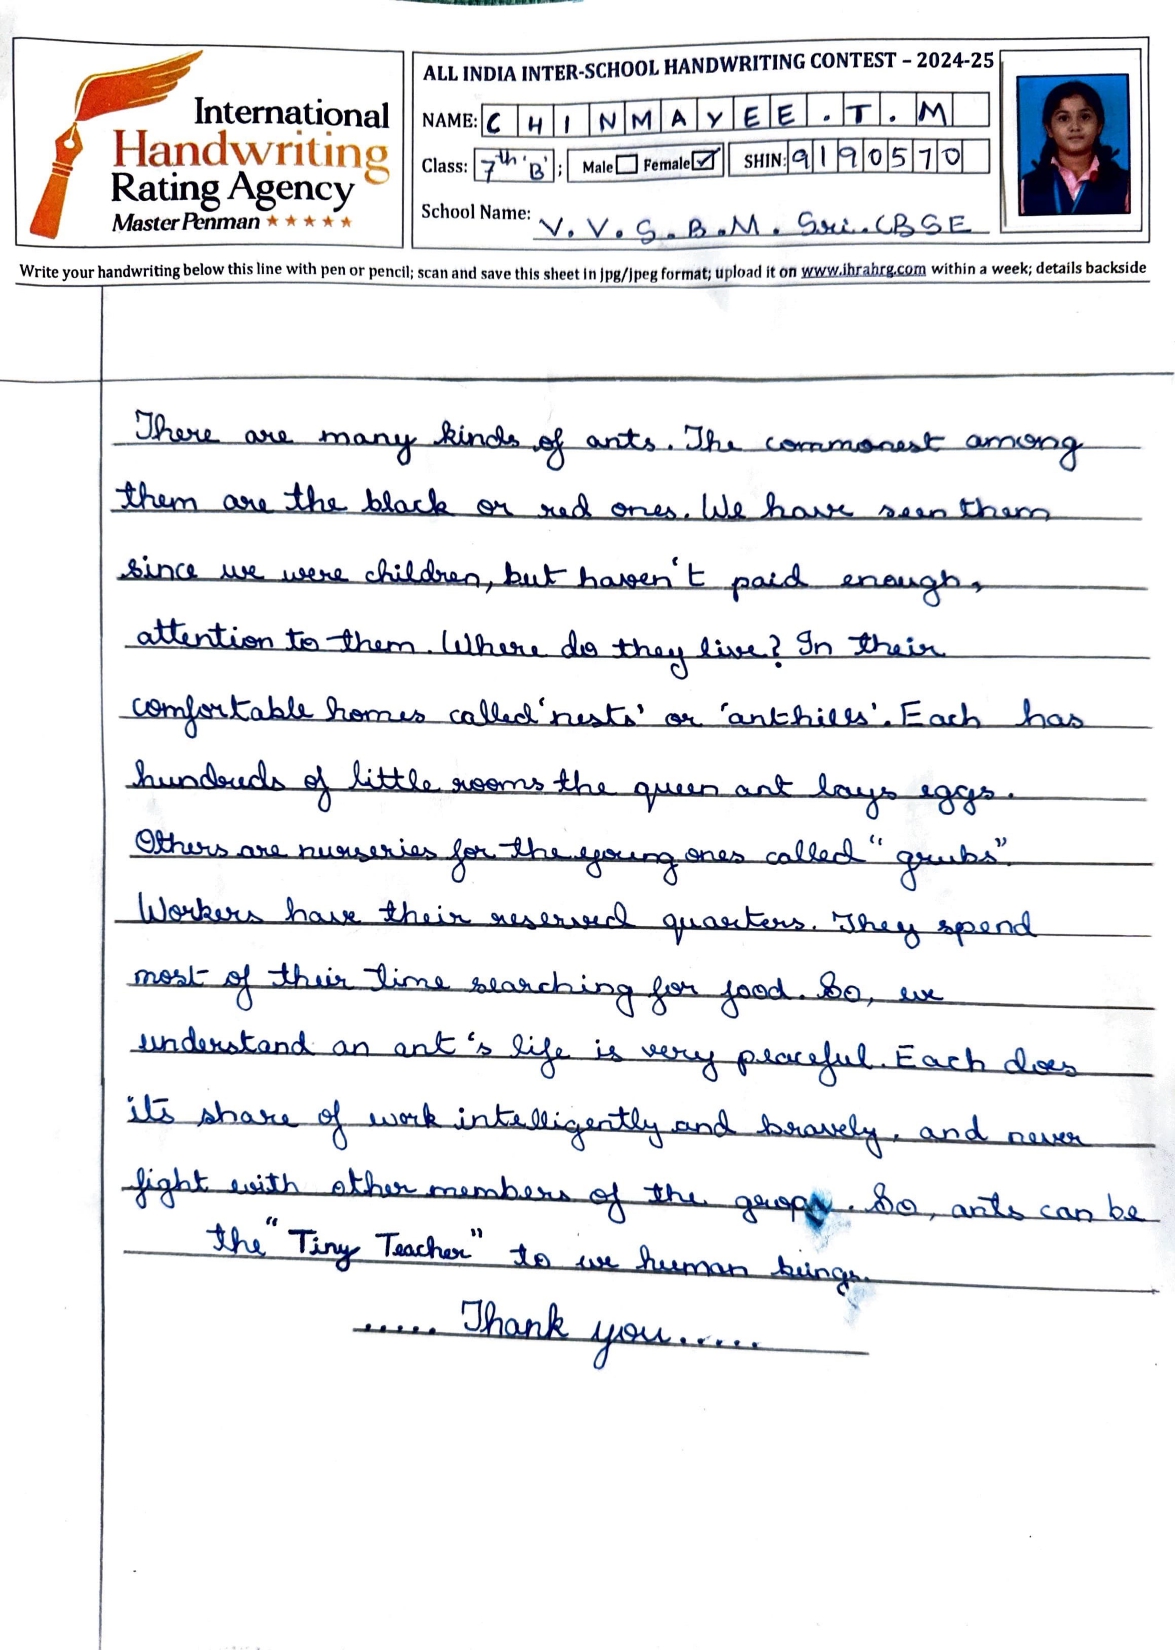 International
Handwriting
Rating Agency
Master Penman ★★★★★
ALL INDIA INTER-SCHOOL HANDWRITING CONTEST – 2024-25
NAME: CHINMAYEE.T.M
Class: 7th 'B'; Male Female ✓ SHIN: 9190570
School Name: V.V.S.B.M. Sri. CBSE
Write your handwriting below this line with pen or pencil; scan and save this sheet in jpg/jpeg format; upload it on www.ihrahrg.com within a week; details backside
There are many kinds of ants. The commonest among
them are the black or red ones. We have seen them
since we were children, but haven't paid enough,
attention to them. Where do they live? In their
comfortable homes called 'nests' or 'anthills'. Each has
hundreds of little rooms the queen ant lays eggs.
Others are nurseries for the young ones called "grubs"
Workers have their reserved quarters. They spend
most of their time searching for food. So, we
understand an ant's life is very peaceful. Each does
its share of work intelligently and bravely, and never
fight with other members of the group. So, ants can be
the "Tiny Teacher" to we human beings.
..... Thank you.....